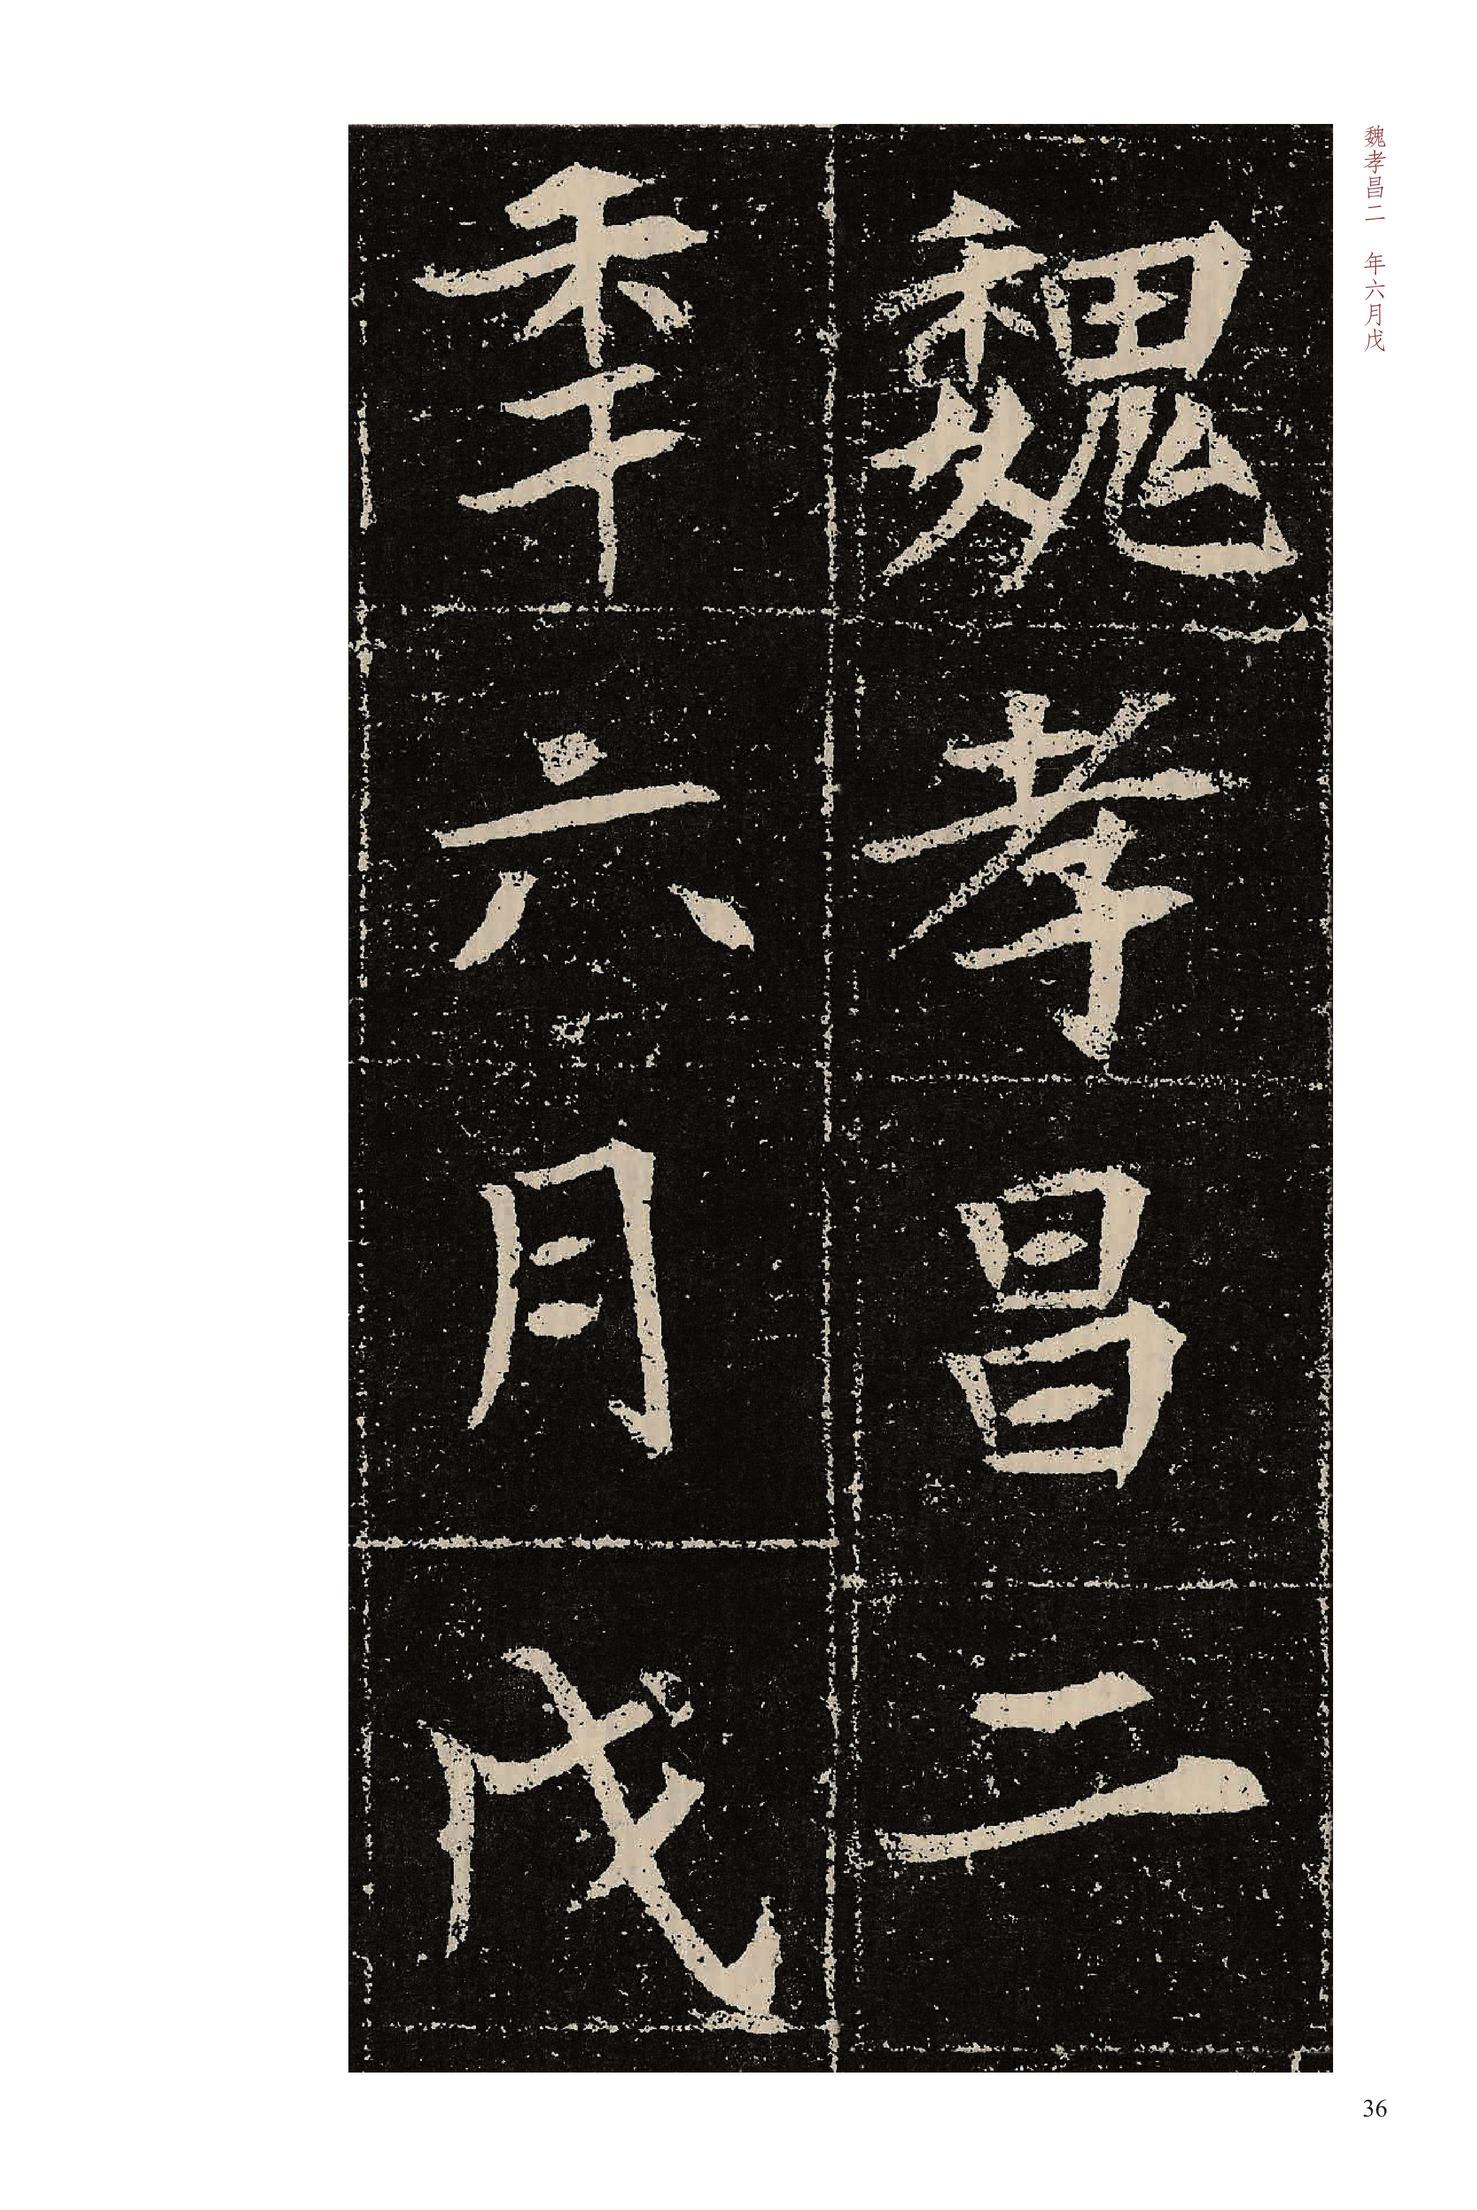 魏孝昌二 年六月戊
魏孝昌二
秊六月戊
36